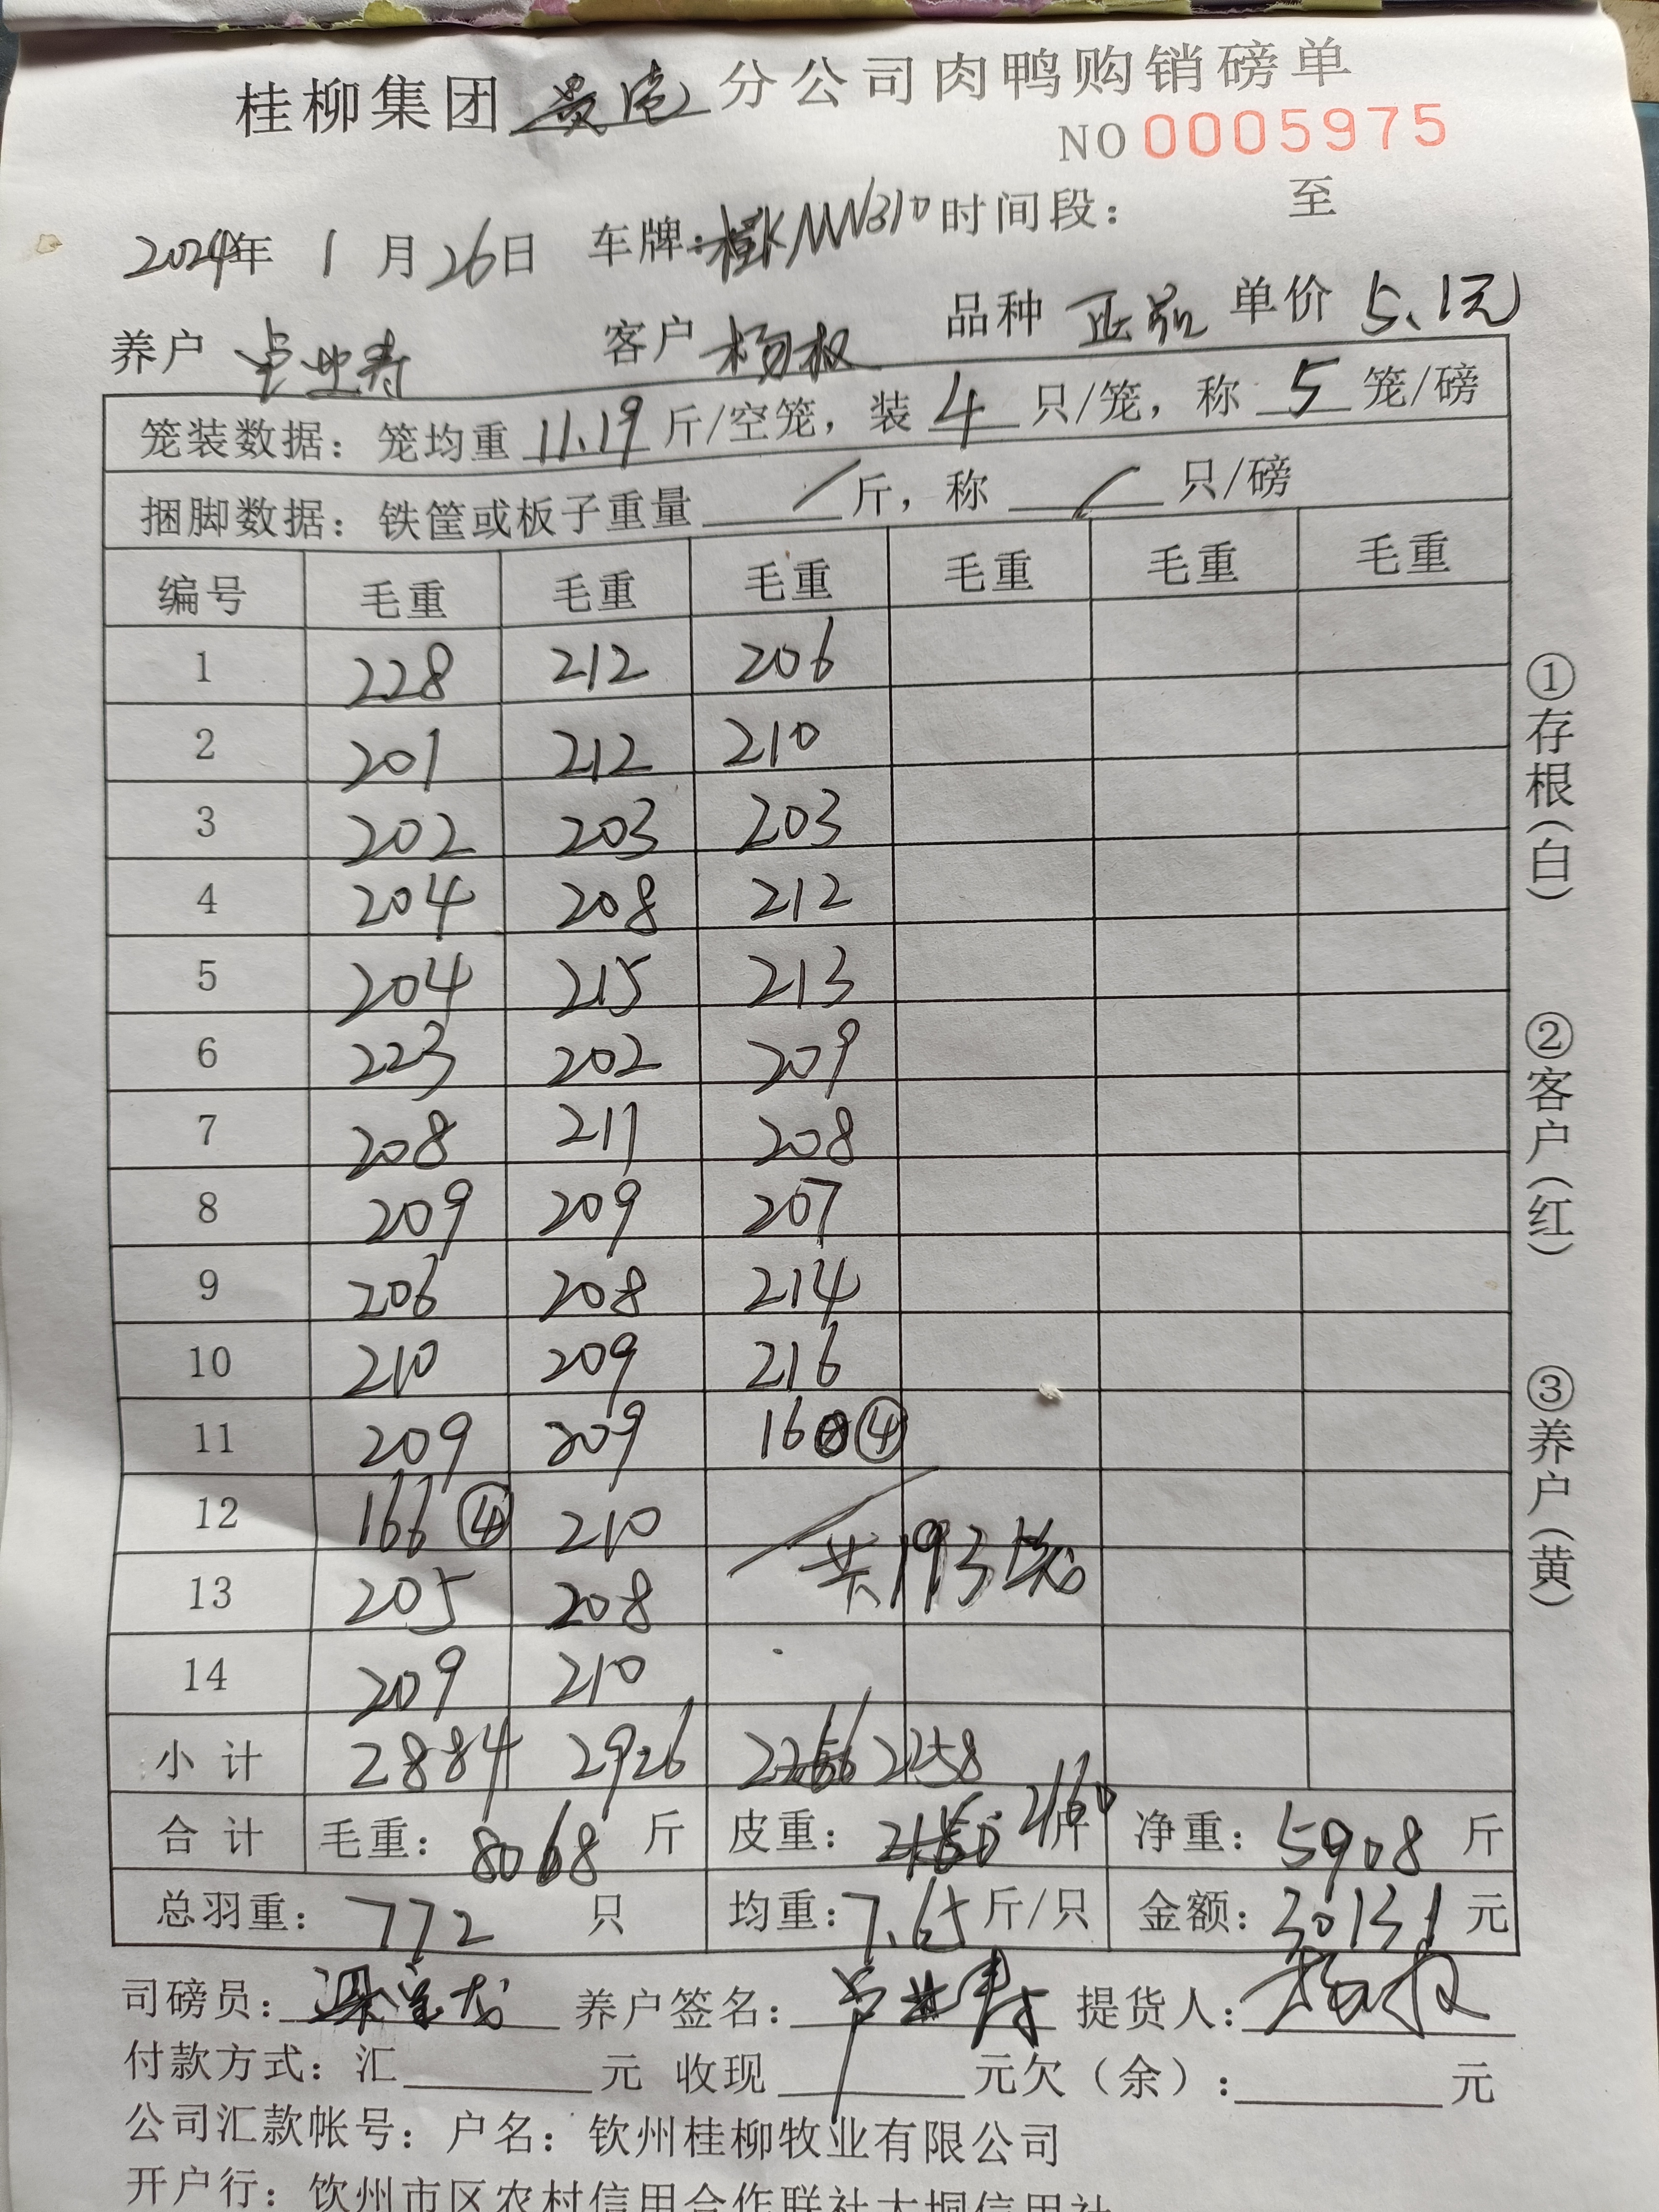 桂柳集团贵港分公司肉鸭购销磅单
NO 0005975
2024年 1月26日 车牌:桂KNN310 时间段: 至
养户 卢业寿 客户 杨权 品种 正品 单价 5.1元
笼装数据: 笼均重 11.19 斤/空笼, 装 4 只/笼, 称 5 笼/磅
捆脚数据: 铁筐或板子重量 / 斤, 称 / 只/磅
编号 毛重 毛重 毛重 毛重 毛重 毛重
1 228 212 206
2 201 212 210
3 202 203 203
4 204 208 212
5 204 215 213
6 223 202 209
7 208 211 208
8 209 209 207
9 206 208 214
10 210 209 216
11 209 209 160 ④
12 166 ④ 210
共193笼
13 205 208
14 209 210
小计 2884 2926 2266 2258
合计 毛重: 8068 斤 皮重: 2160 斤 净重: 5908 斤
总羽重: 772 只 均重: 7.65 斤/只 金额: 30131 元
司磅员: 养户签名: 卢业寿 提货人: 杨权
付款方式: 汇 元 收现 元 欠(余): 元
公司汇款帐号: 户名: 钦州桂柳牧业有限公司
开户行: 钦州市区农村信用合作联社大垌信用社
①存根(白) ②客户(红) ③养户(黄)